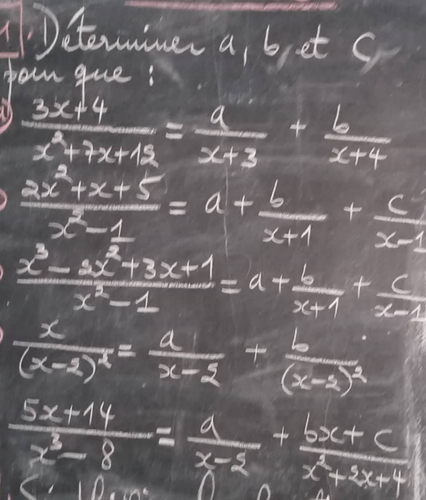 1. Déterminer a, b, et c,
pour que :
a) 3x+4 / x²+7x+12 = a / x+3 + b / x+4
2x²+x+5 / x²-1 = a + b / x+1 + c / x-1
x³-2x²+3x+1 / x²-1 = a + b / x+1 + c / x-1
x / (x-2)² = a / x-2 + b / (x-2)²
5x+14 / x³-8 = a / x-2 + bx+c / x²+2x+4